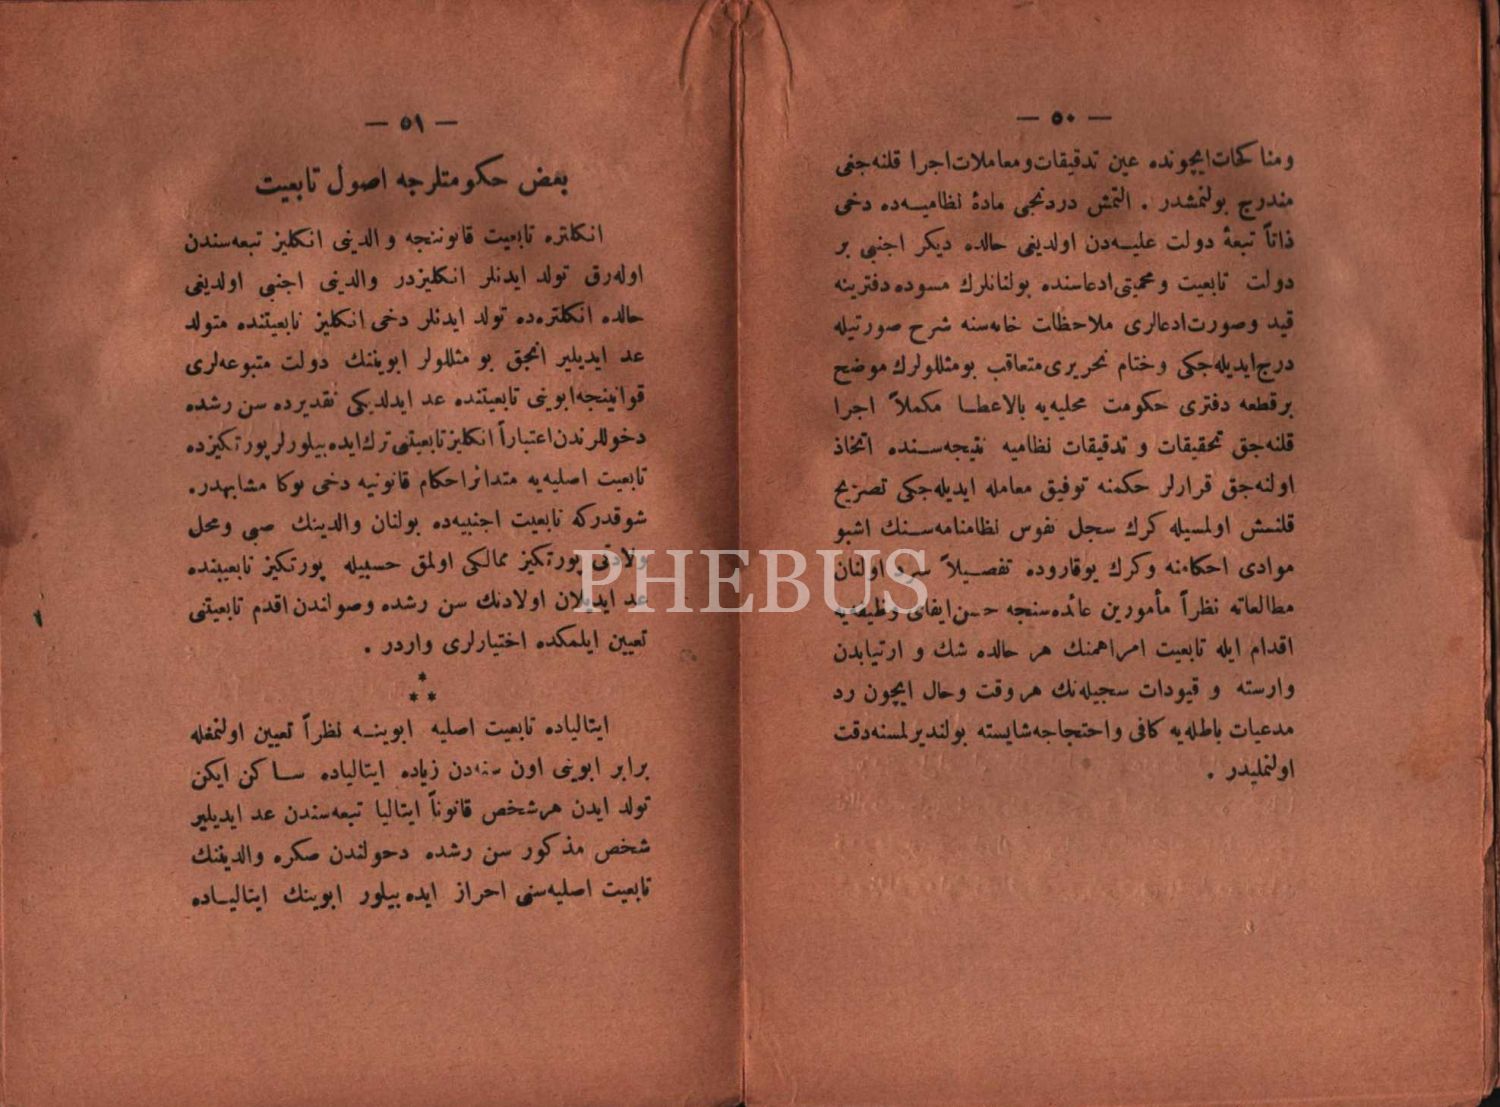 — ٥٠ —
ومناكحات ایچونده عین تدقیقات ومعاملات اجرا قلنه‌جغی
مندرج بولنمشدر . التمش دردنجی مادهٔ نظامیه‌ده دخی
ذاتاً تبعهٔ دولت علیه‌دن اولدیغی حالده دیكر اجنبی بر
دولت تابعیت ومحمیتی ادعاسنده بولنانلرك مسوده دفترینه
قید وصورت ادعالری ملاحظات خانه‌سنه شرح صورتیله
درج ایدیله‌جكی وختام تحریری متعاقب بومثللولرك موضح
برقطعه دفتری حكومت محلیه‌یه بالاعطا مكملاً اجرا
قلنه‌جق تحقیقات و تدقیقات نظامیه نتیجه‌سنده اتخاذ
اولنه‌جق قرارلر حكمنه توفیق معامله ایدیله‌جكی تصریح
قلنمش اولمسیله كرك سجل نفوس نظامنامه‌سنك اشبو
موادی احكامنه وكرك یوقاروده تفصیلاً سرد اولنان
مطالعاته نظراً مأمورین عائده‌سنجه حسن ایفای وظیفه‌یه
اقدام ایله تابعیت امراهمنك هر حالده شك و ارتیابدن
وارسته و قیودات سجیله‌نك هروقت وحال ایچون رد
مدعیات باطله‌یه كافی واحتجاجه شایسته بولندیرلمسنه دقت
اولنملیدر .
— ٥١ —
بعض حكومتلرجه اصول تابعیت
انكلتره تابعیت قانوننجه والدینی انكلیز تبعه‌سندن
اوله‌رق تولد ایدنلر انكلیزدر والدینی اجنبی اولدیغی
حالده انكلتره‌ده تولد ایدنلر دخی انكلیز تابعیتنده متولد
عد ایدیلیر انجق بو مثللولر ابویننك دولت متبوعه‌لری
قوانینجه ابوینی تابعیتنده عد ایدلدیكی تقدیرده سن رشده
دخوللرندن اعتباراً انكلیز تابعیتنی ترك ایده‌بیلورلر پورتكیزده
تابعیت اصلیه‌یه متدائر احكام قانونیه دخی بوكا مشابهدر.
شوقدركه تابعیت اجنبیه‌ده بولنان والدینك صبی ومحل
ولادتی پورتكیز ممالكی اولمق حسبیله پورتكیز تابعیتنده
عد ایدیلان اولادنك سن رشده وصولندن اقدم تابعیتنی
تعیین ایلمكده اختیارلری واردر .
*
* *
ایتالیاده تابعیت اصلیه ابوینه نظراً تعیین اولنمغله
برابر ابوینی اون سنه‌دن زیاده ایتالیاده ساكن ایكن
تولد ایدن هرشخص قانوناً ایتالیا تبعه‌سندن عد ایدیلیر
شخص مذكور سن رشده دخولندن صكره والدیننك
تابعیت اصلیه‌سنی احراز ایده‌بیلور ابوینك ایتالیاده
PHEBUS